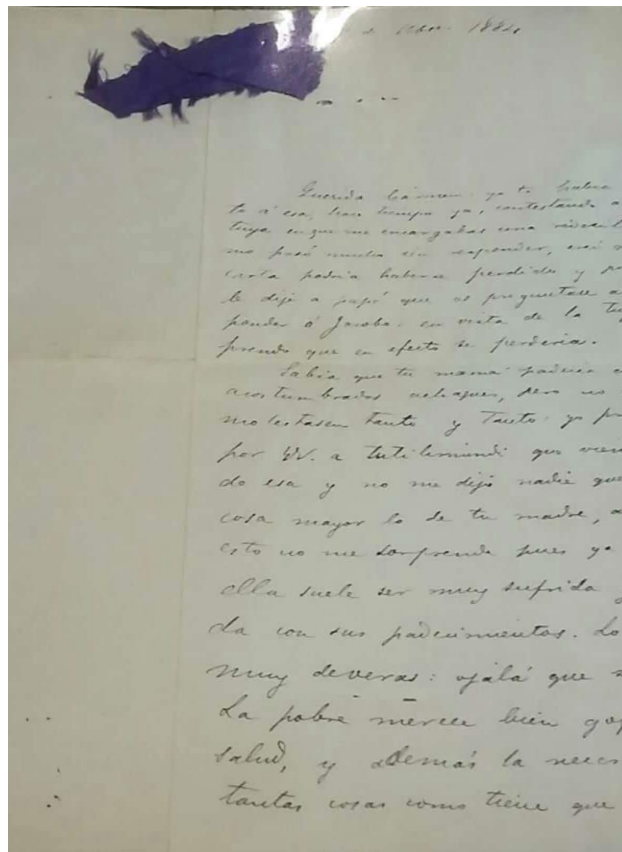 de 1884
Querida Cármen: ya te habia
ta á esa, hace tiempo ya, contestando a
tuya en que me encargabas una
me pasó mucho sin responder, creí
carta podria haberse perdido y
le dije a papá que os preguntase
ponder á Jacobo: en vista de la
prendo que en efecto se perderia.
Sabia que tu mamá padecia
acostumbrados achaques, pero no
molestasen tanto y tanto: yo
por VV. a tutilimundi que
de esa y no me dijo nadie que
cosa mayor lo de tu madre,
esto no me sorprende pues ya
ella suele ser muy sufrida
da con sus padecimientos. Lo
muy deveras: ojalá que
La pobre merece bien
salud, y además la
tantas cosas como tiene que